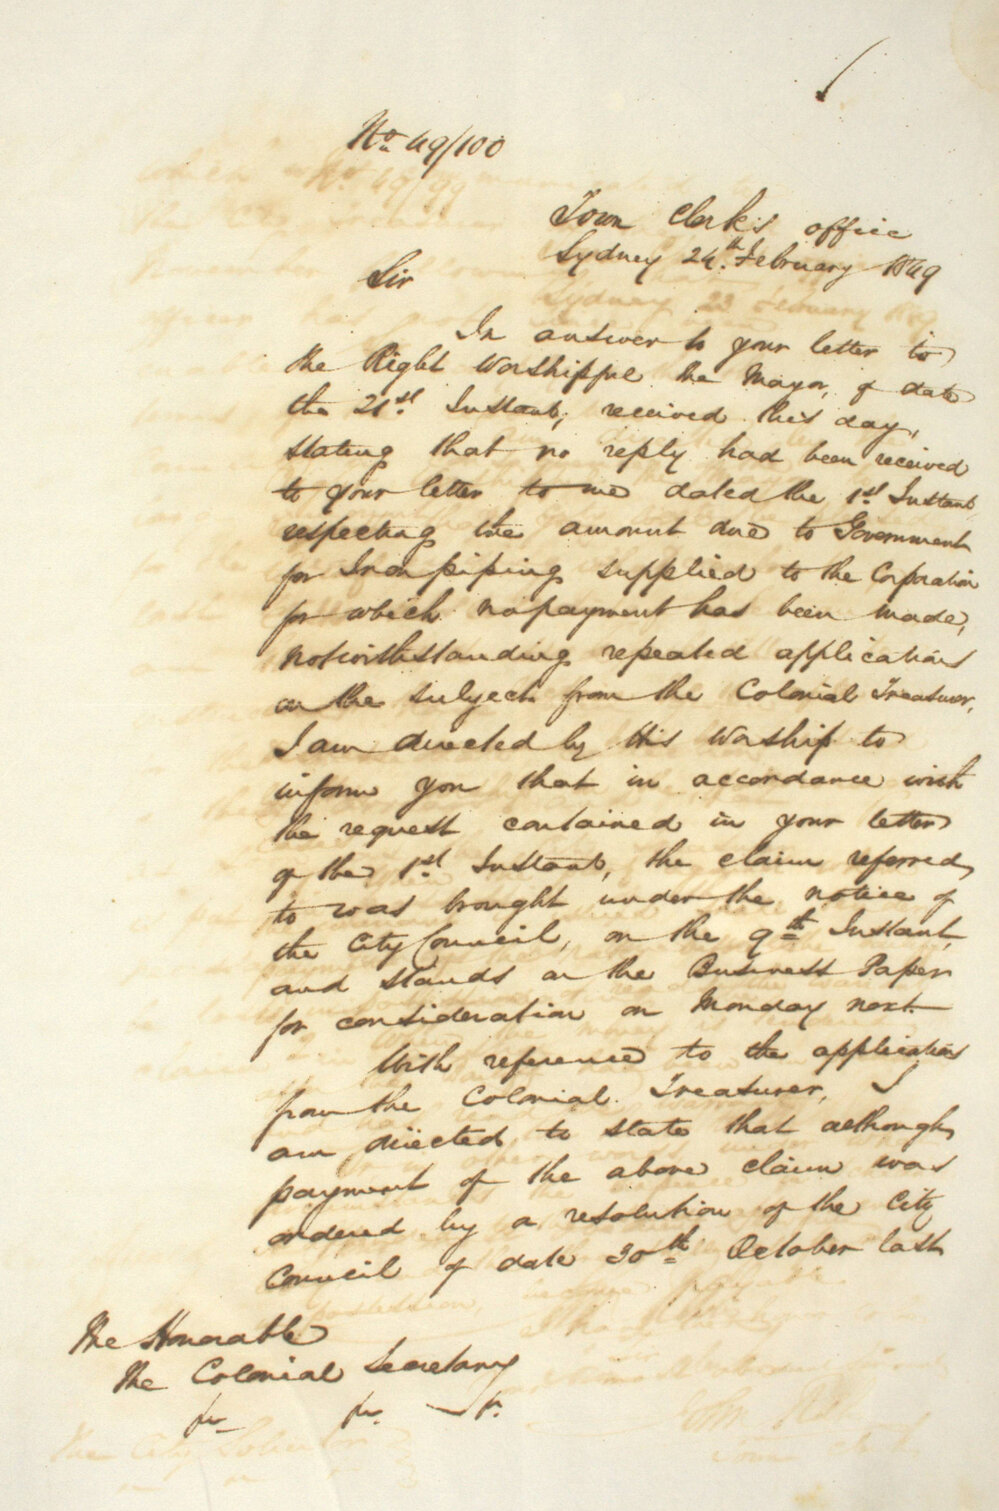 No. 49/100
Town Clerk's office
Sydney 24th February 1849
Sir
In answer to your letter to
the Right Worshipful the Mayor, of date
the 21st Instant, received this day,
stating that no reply had been received
to your letter to me dated the 1st Instant
respecting the amount due to Government
for Iron piping supplied to the Corporation
for which no payment has been made,
notwithstanding repeated applications
on the subject from the Colonial Treasurer,
I am directed by His Worship to
inform you that in accordance with
the request contained in your letter
of the 1st Instant, the claim referred
to was brought under the notice of
the City Council, on the 9th Instant,
and stands on the Business Paper
for consideration on Monday next.
With reference to the applications
from the Colonial Treasurer, I
am directed to state that although
payment of the above claim was
ordered by a resolution of the City
Council of date 30th October last
The Honorable
The Colonial Secretary